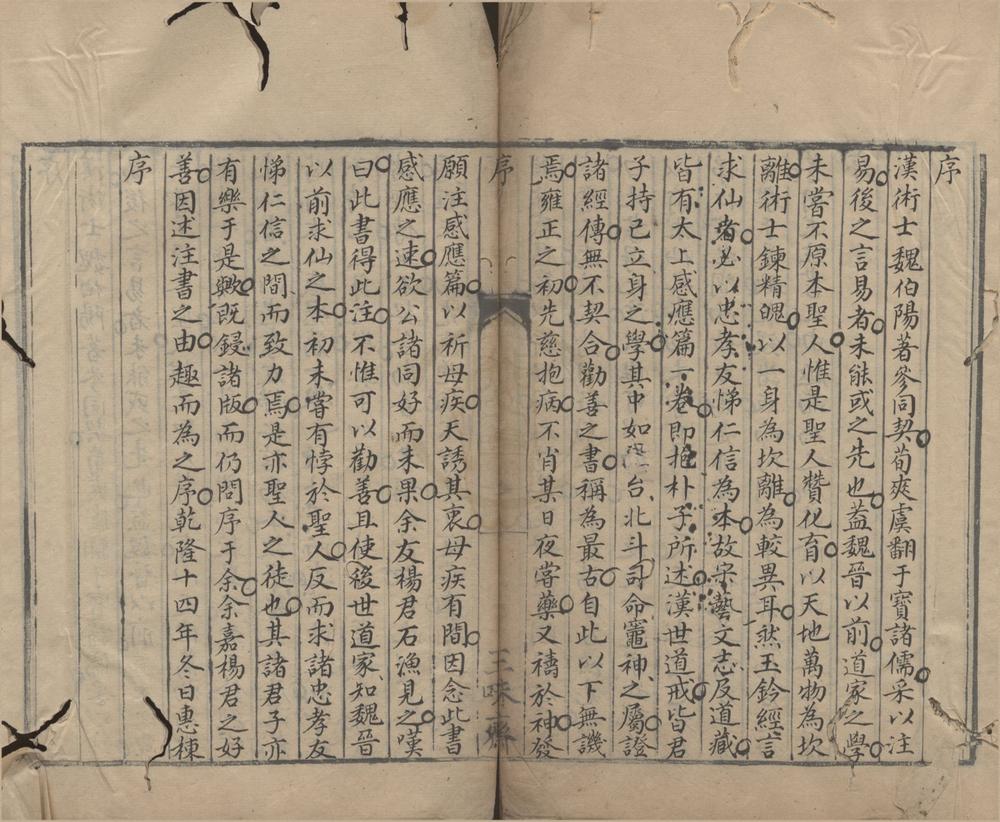 序
漢術士魏伯陽著參同契荀爽虞翻于寶諸儒采以注
易後之言易者未能或之先也蓋魏晉以前道家之學
未嘗不原本聖人惟是聖人贊化育以天地萬物為坎
離術士鍊精魄以一身為坎離為較異耳然玉鈐經言
求仙者必以忠孝友悌仁信為本故宋藝文志及道藏
皆有太上感應篇一卷即抱朴子所述漢世道戒皆君
子持己立身之學其中如台北斗司命竈神之屬證
諸經傳無不契合勸善之書稱為最古自此以下無譏
焉雍正之初先慈抱病不肖某日夜嘗藥又禱於神發
序 三 味齋
願注感應篇以祈母疾天誘其衷母疾有間因念此書
感應之速欲公諸同好而未果余友楊君石漁見之嘆
曰此書得此注不惟可以勸善且使後世道家知魏晉
以前求仙之本初未嘗有悖於聖人反而求諸忠孝友
悌仁信之間而致力焉是亦聖人之徒也其諸君子亦
有樂于是歟既鋟諸版而仍問序于余余嘉楊君之好
善因述注書之由趣而為之序乾隆十四年冬日惠棟
序